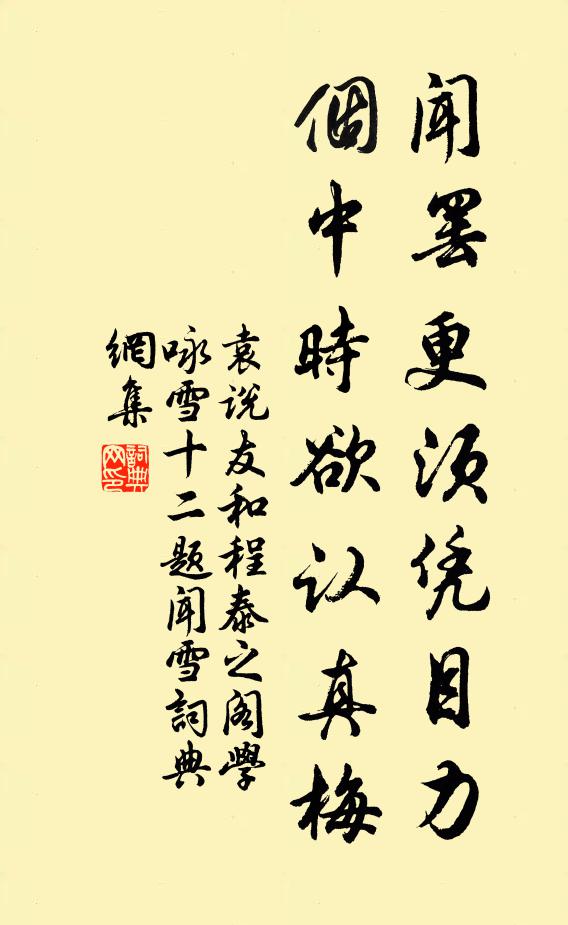 闻罢更须凭目力
個中時欲认真梅
袁说友和程泰之阁學
咏雪十二题闻雪詞典
網集
詞典
网印